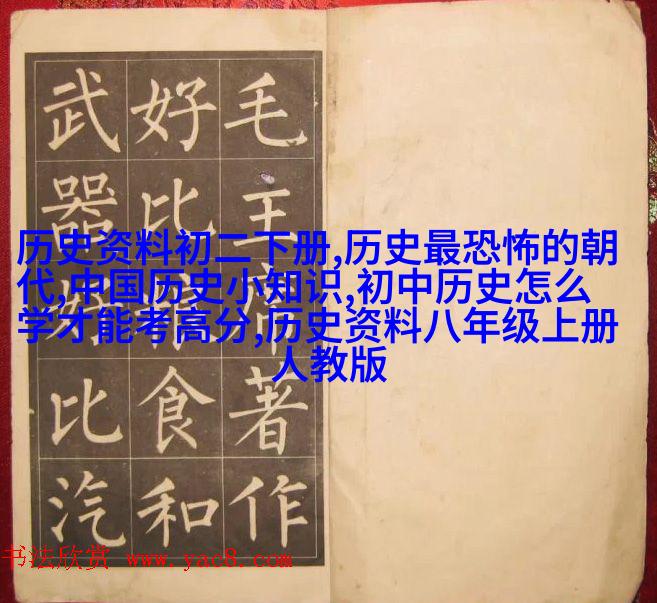 毛主著作
好比食和
武器好比汽
历史资料初二下册,历史最恐怖的朝
代,中国历史小知识,初中历史怎么
学才能考高分,历史资料八年级上册
人教版
书法欣赏 www.yac8.com